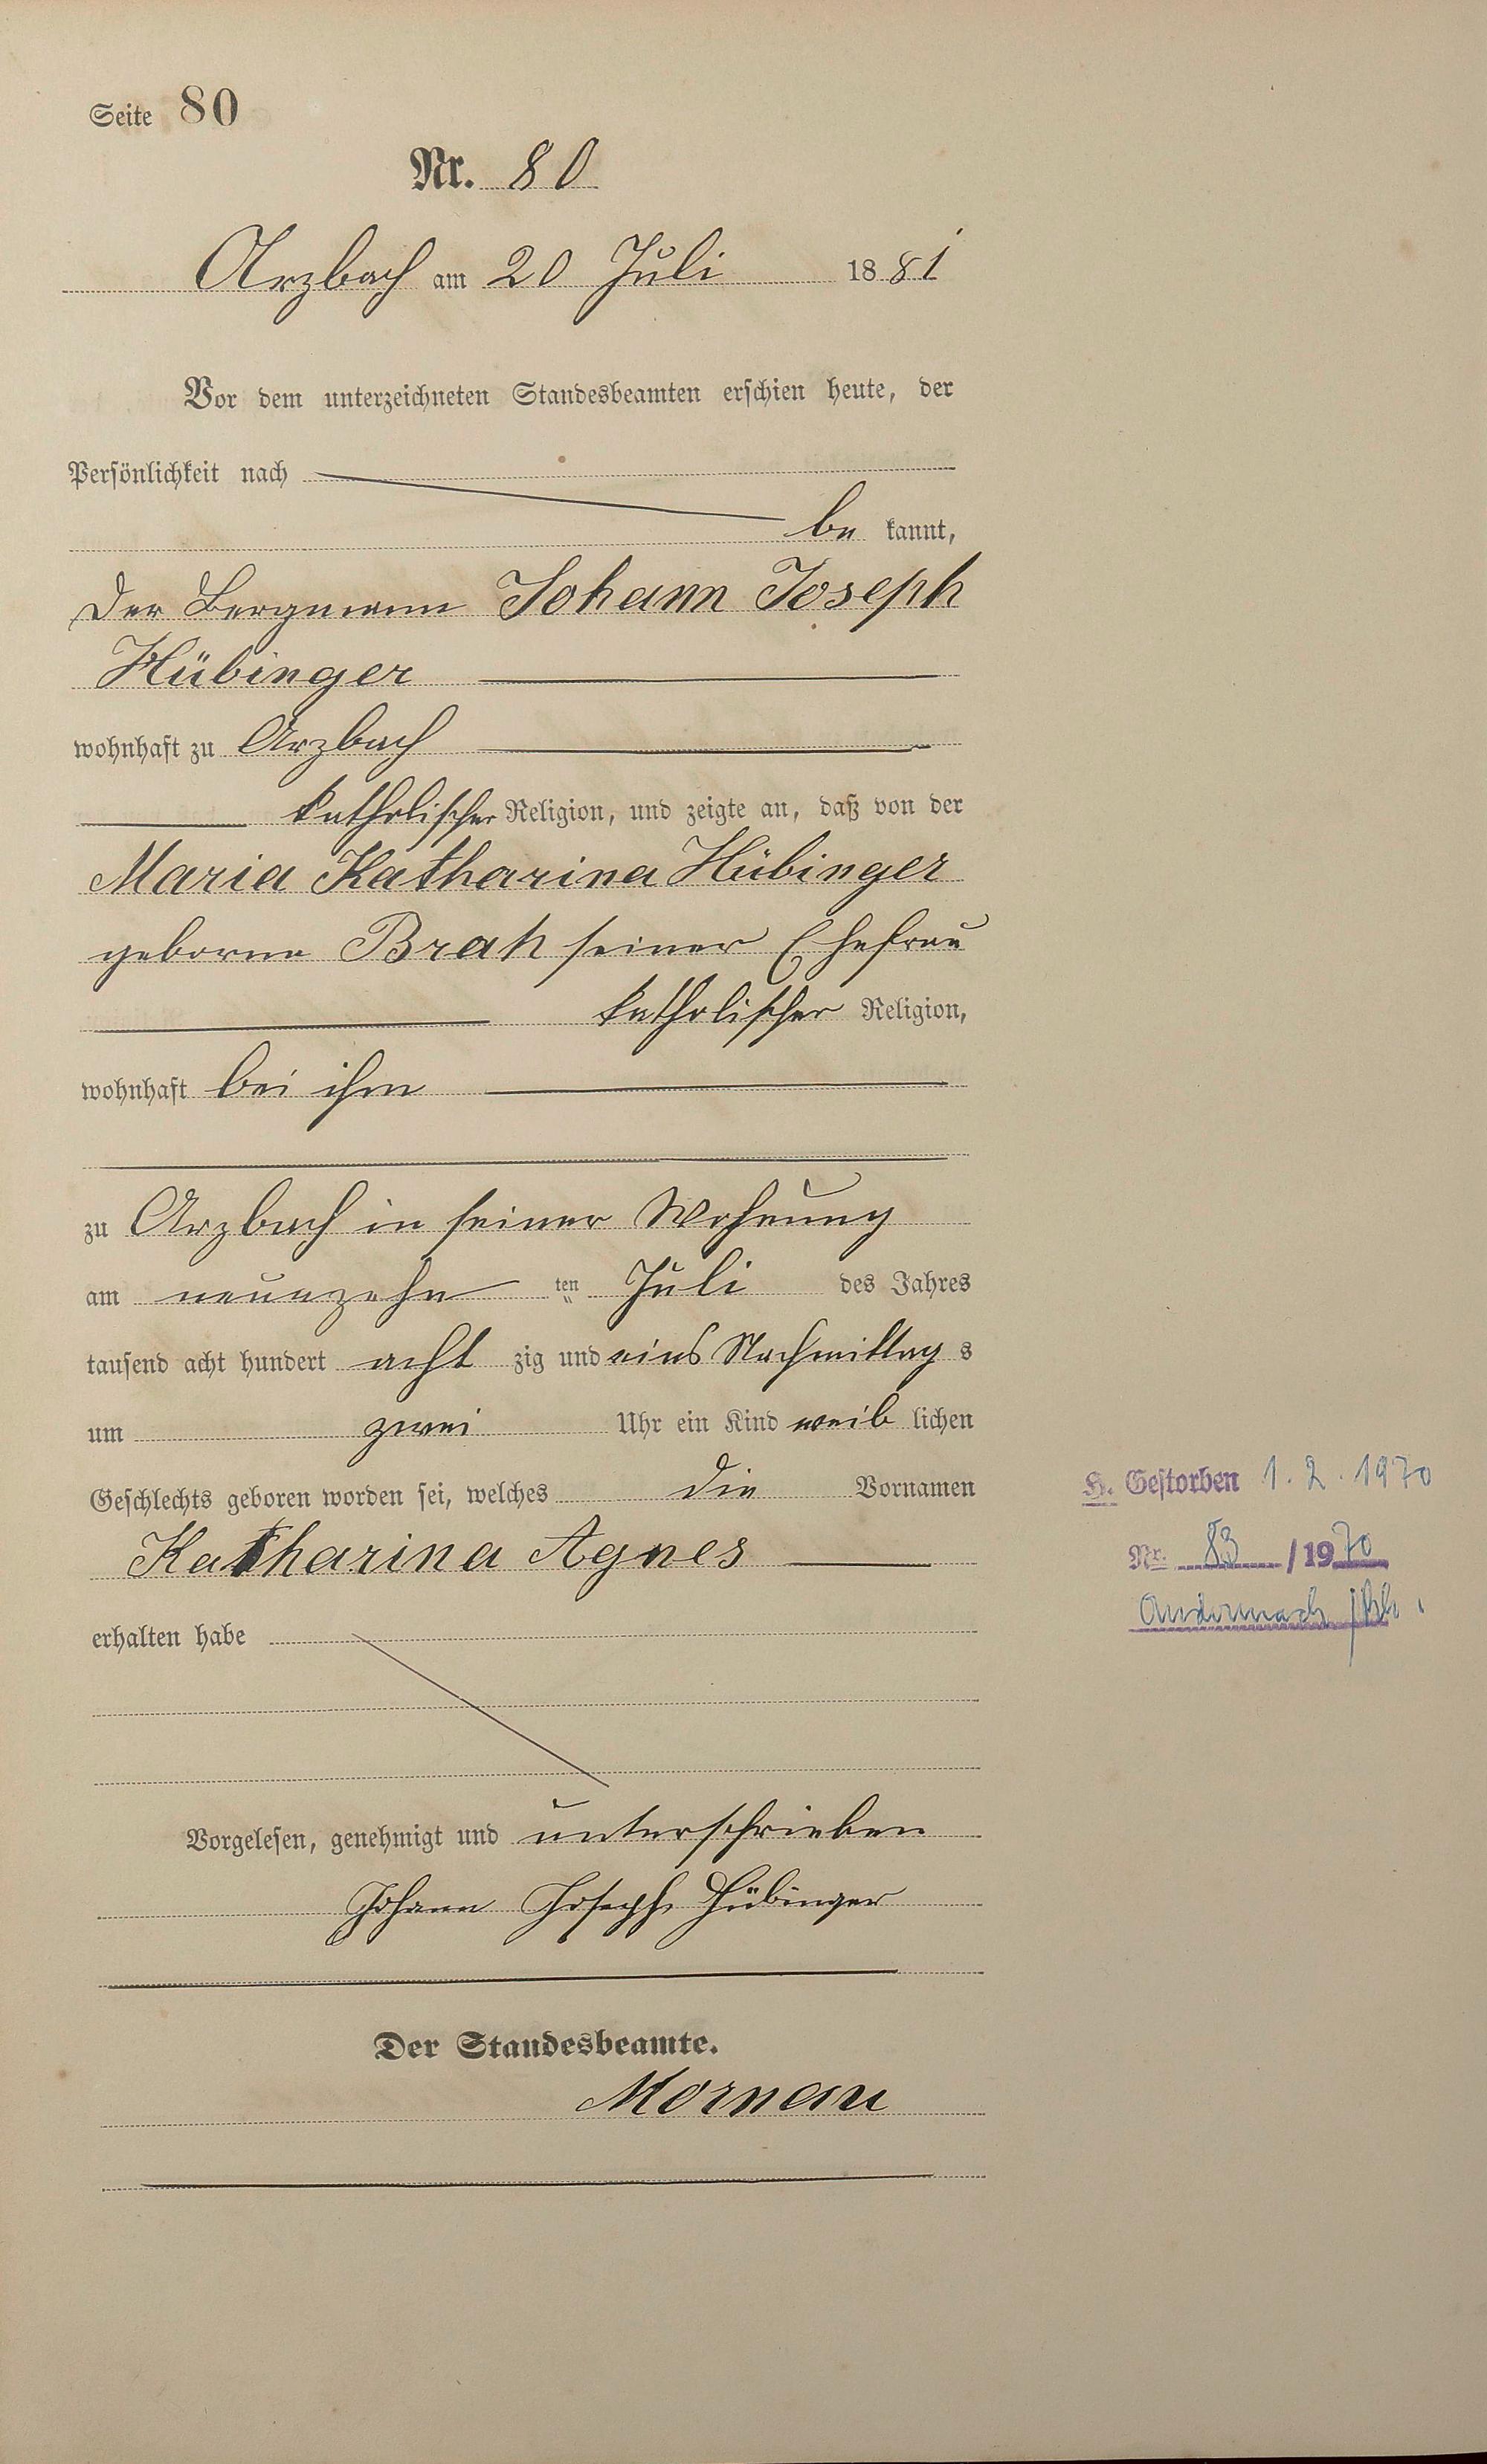 Seite 80
Nr. 80
Arzbach am 20 Juli 1881
Vor dem unterzeichneten Standesbeamten erschien heute, der
Persönlichkeit nach
be kannt,
der Bergmann Johann Joseph
Hübinger
wohnhaft zu Arzbach
katholischer Religion, und zeigte an, daß von der
Maria Katharina Hübinger
geborne Brah seiner Ehefrau
katholischer Religion,
wohnhaft bei ihm
zu Arzbach in seiner Wohnung
am neunzehn ten Juli des Jahres
tausend acht hundert acht zig und eins Nachmittag s
um zwei Uhr ein Kind weib lichen
Geschlechts geboren worden sei, welches die Vornamen
Katharina Agnes
erhalten habe
Vorgelesen, genehmigt und unterschrieben
Johann Joseph Hübinger
Der Standesbeamte.
Mornau
H. Gestorben 1. 2. 1970
Nr. 83 / 1970
Andernach /Rh.